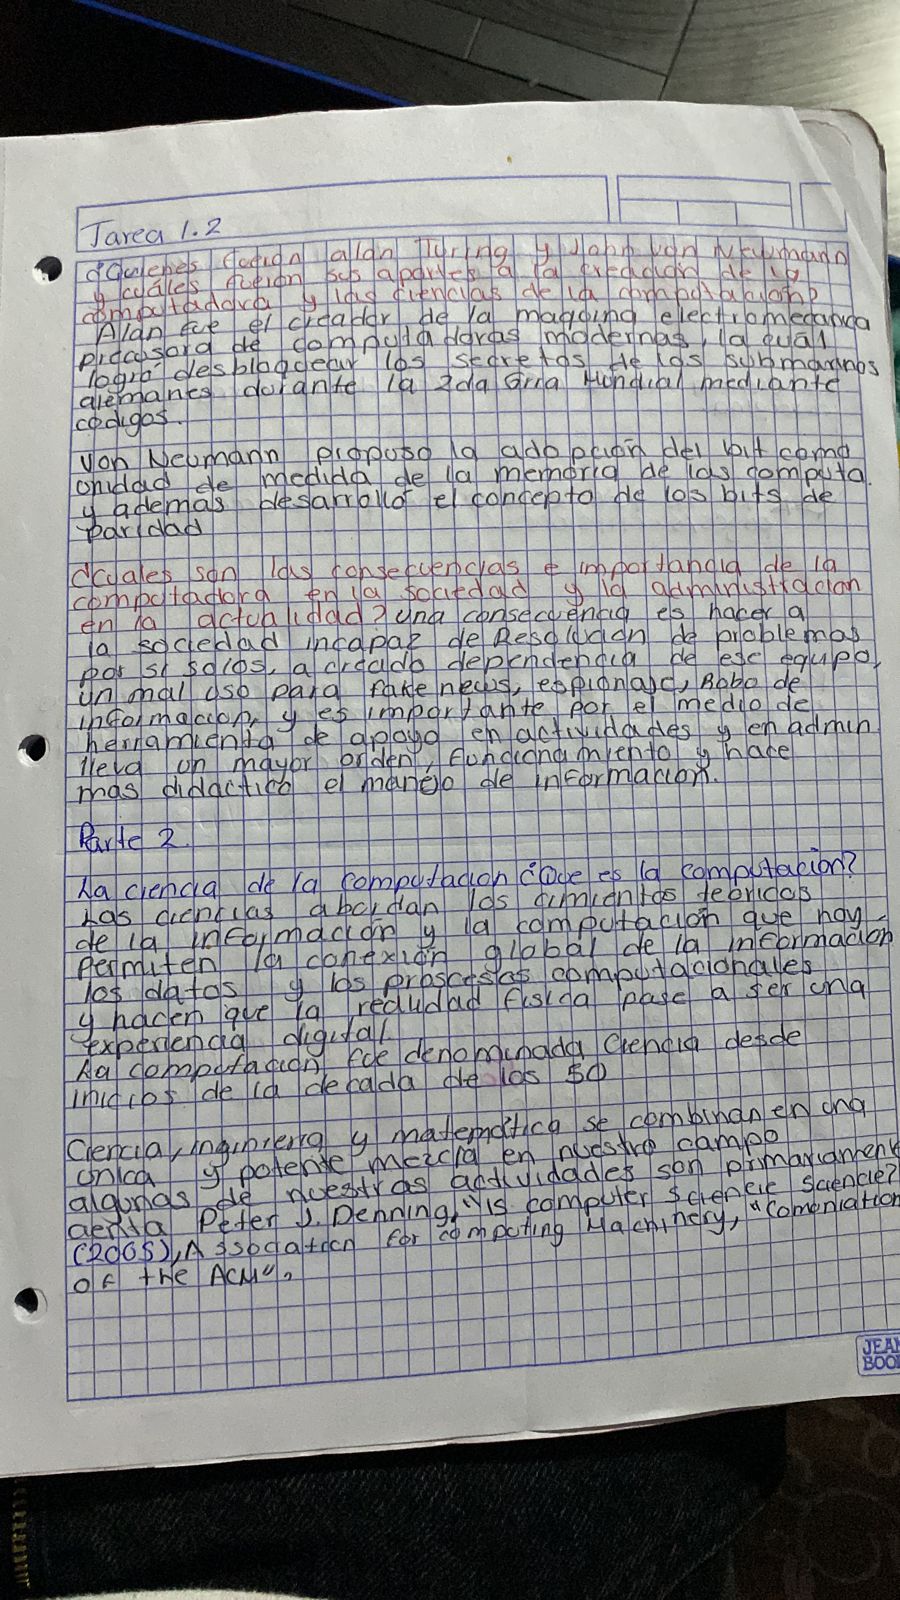 Tarea 1.2
¿Quienes fueron alan Turing y John von Neumann
y cuáles fueron sus aportes a la creación de la
computadora y las ciencias de la computación?
Alan fue el creador de la maquina electromecanica
precursora de computadoras modernas, la cual
logró desbloquear los secretos de los submarinos
alemanes durante la 2da Grra Mundial mediante
codigos.
Von Neumann propuso la adopción del bit como
unidad de medida de la memoria de las computa.
y ademas desarrolló el concepto de los bits de
paridad
¿Cuales son las consecuencias e importancia de la
computadora en la sociedad y la administración
en la actualidad? una consecuencia es hacer a
la sociedad incapaz de Resolucion de problemas
por si solos, a creado dependencia de ese equipo,
un mal uso para fake news, espionaje, Robo de
informacion, y es importante por el medio de
herramienta de apoyo en actividades y en admin
lleva un mayor orden, funcionamiento y hace
mas didactico el manejo de informacion.
Parte 2
La ciencia de la computacion ¿Que es la computacion?
Las ciencias abordan los cimientos teoricos
de la información y la computación que hoy
permiten la conexión global de la información
los datos y los proscesas computacionales
y hacen que la redudad fisica pase a ser una
experiencia digital
La computacion fue denominada Ciencia desde
inicios de la decada de los 50
Ciencia, inginieria y matemática se combinan en una
unica y potente mezcla en nuestro campo
algunas de nuestras actividades son primariament
Peter J. Denning, "is computer science science?
(2005), Association for computing Machinery,
of the ACM",
JEAN
BOOK